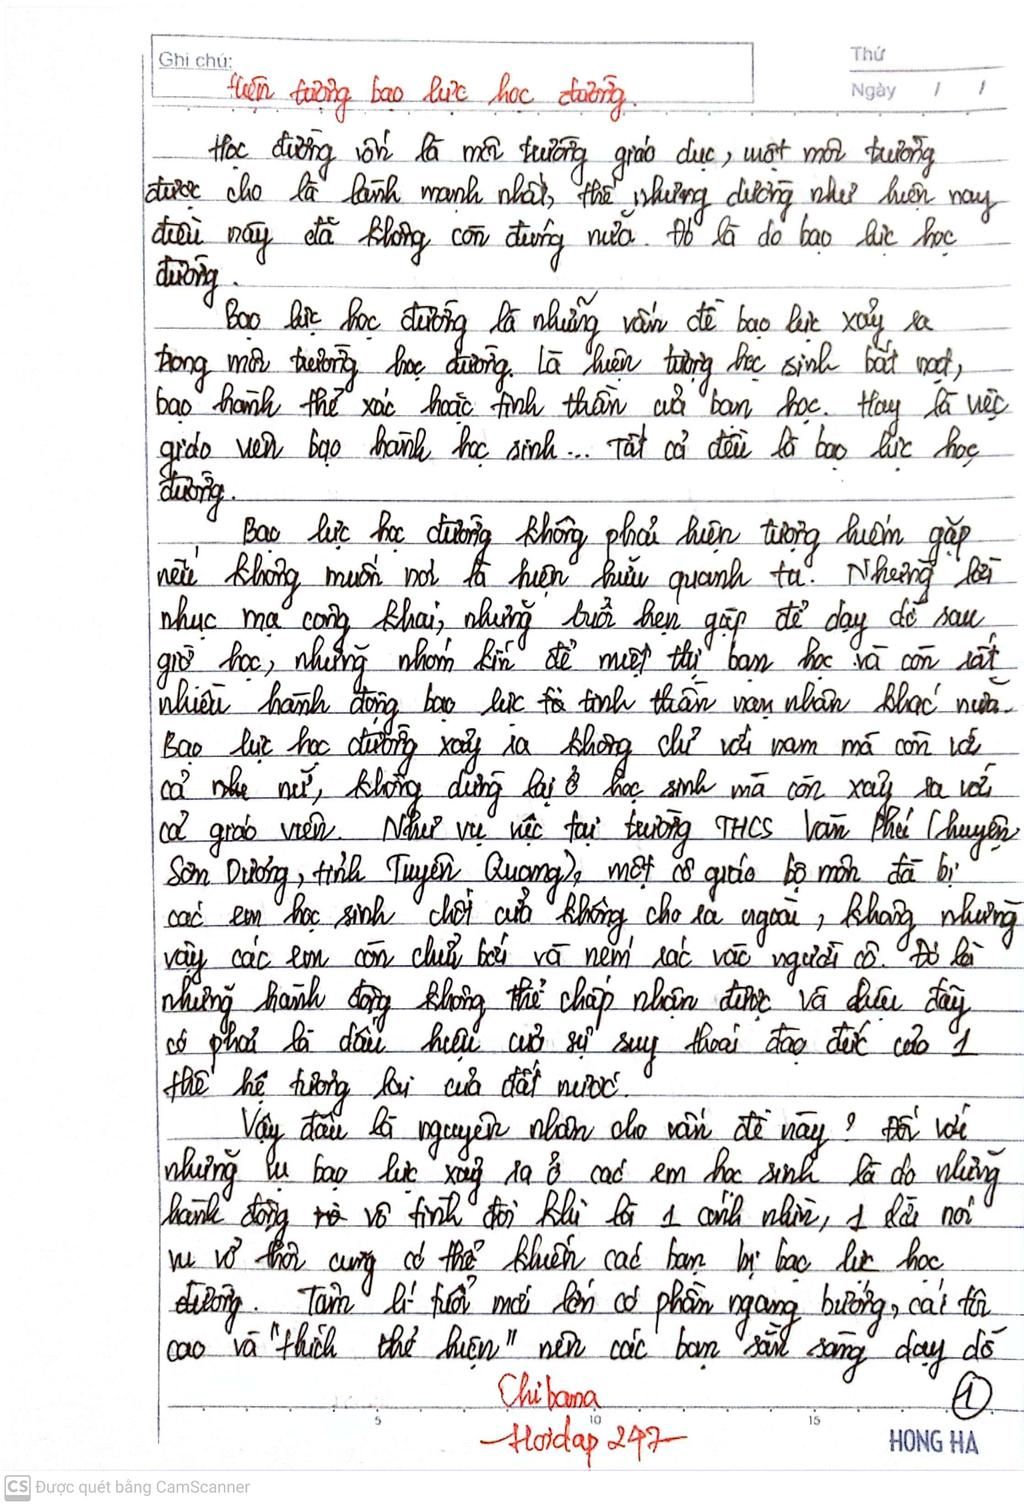 Ghi chú:
Thứ
Ngày / /
Hiện tượng bạo lực học đường.
Học đường vốn là môi trường giáo dục, một môi trường
được cho là lành mạnh nhất, thế nhưng dường như hiện nay
điều này đã không còn đúng nữa. Đó là do bạo lực học
đường.
Bạo lực học đường là những vấn đề bạo lực xảy ra
trong môi trường học đường. Là hiện tượng học sinh bắt nạt,
bạo hành thể xác hoặc tinh thần của bạn học. Hay là việc
giáo viên bạo hành học sinh... Tất cả đều là bạo lực học
đường.
Bạo lực học đường không phải hiện tượng hiếm gặp
nếu không muốn nói là hiện hữu quanh ta. Những lời
nhục mạ công khai, những buổi hẹn gặp để dạy dỗ sau
giờ học, những nhóm kín để miệt thị bạn học và còn rất
nhiều hành động bạo lực tinh thần nạn nhân khác nữa.
Bạo lực học đường xảy ra không chỉ với nam mà còn với
cả nữ, không dừng lại ở học sinh mà còn xảy ra với
cả giáo viên. Như vụ việc tại trường THCS Văn Phú (huyện
Sơn Dương, tỉnh Tuyên Quang), một cô giáo bộ môn đã bị
các em học sinh chốt cửa không cho ra ngoài, không những
vậy các em còn chửi bới và ném rác vào người cô. Đó là
những hành động không thể chấp nhận được và điều đây
có phải là dấu hiệu của sự suy thoái đạo đức của 1
thế hệ tương lai của đất nước.
Vậy đâu là nguyên nhân cho vấn đề này? Đối với
những vụ bạo lực xảy ra ở các em học sinh là do những
hành động vô tình đôi khi là 1 cánh nhìn, 1 lời nói
vu vơ thôi cũng có thể khiến các bạn bị bạo lực học
đường. Tâm lí tuổi mới lớn có phần ngang bướng, cái tôi
cao và "thích thể hiện" nên các bạn sẵn sàng dạy dỗ
1
Chibana
Hoidap 247
5 10 15
HONG HA
CS Được quét bằng CamScanner